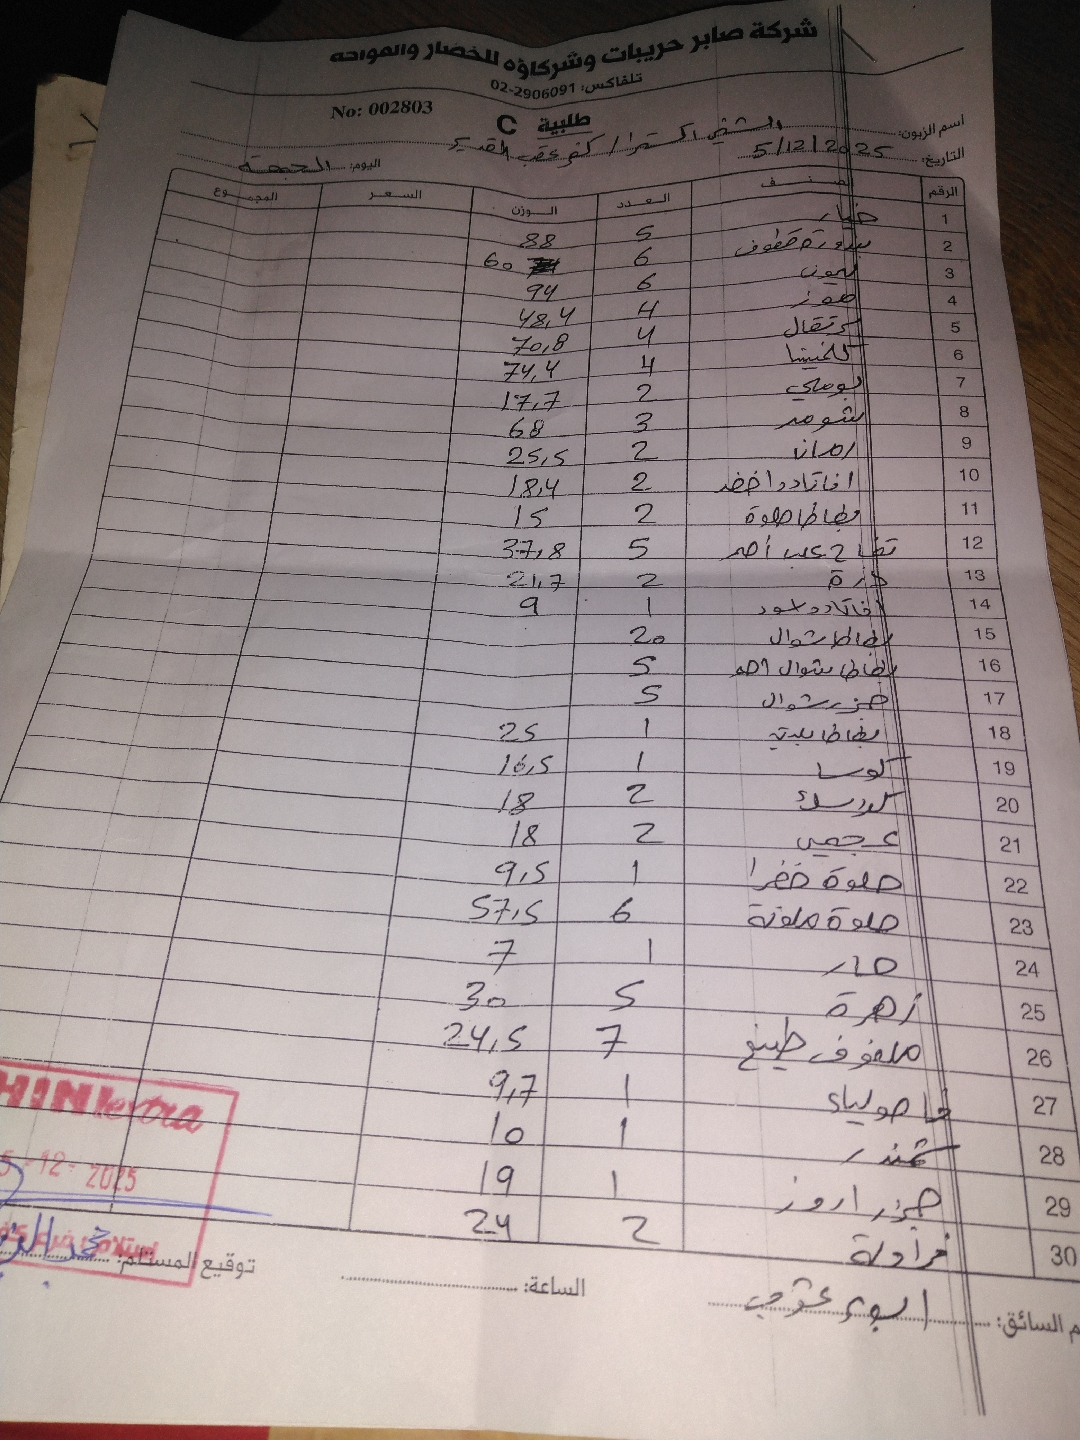 شركة صابر حريبات وشركاؤه للخضار والفواكه
تلفاكس: 02-2906091
No: 002803
طلبية C
اسم الزبون: الشني اكسترا / كفر عقب القديم
التاريخ: 5/12/2025 اليوم: الجمعة
الرقم الصنف العدد الوزن السعر المجموع
1 خيار 5 88
2 بندورة قطوف 6 60
3 ليمون 6 94
4 موز 4 48,4
5 برتقال 4 70,8
6 كلمنتينا 4 74,4
7 بوملي 2 17,7
8 شومر 3 68
9 رمان 2 25,5
10 افاتادو اخضر 2 18,4
11 بطاطا حلوة 2 15
12 تفاح علب أحمر 5 37,8
13 ذرة 2 21,7
14 افاتادو اسود 1 9
15 بطاطا شوال 20
16 بطاطا شوال احمر 5
17 جزر شوال 5
18 بطاطا بلدية 1 25
19 كوسا 1 16,5
20 2 18
21 عجمي 2 18
22 حلوة خضرا 1 9,5
23 حلوة ملونة 6 57,5
24 حار 1 7
25 زهرة 5 30
26 ملفوف طبيخ 7 24,5
27 فاصولياء 1 9,7
28 شمندر 1 10
29 1 19
30 فراولة 2 24
م السائق: ابو الساعة: توقيع المستلم:
HINI extra
5-12-2025